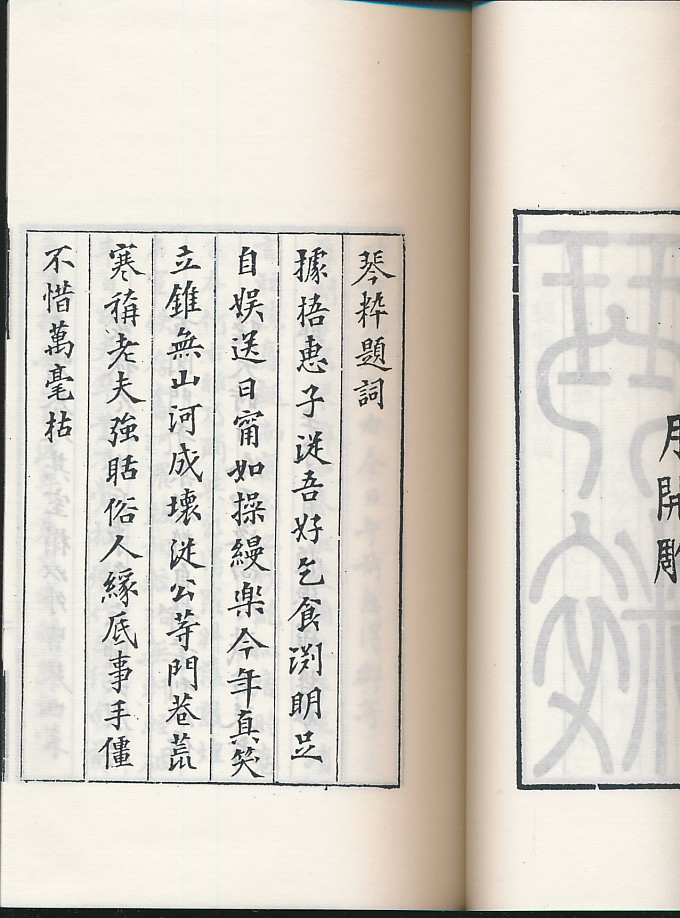 月開雕
琴粹題詞
據捂惠子從吾好乞食渊明足
自娱送日甯如操縵樂今年真笑
立錐無山河成壞從公等門巷荒
寒稱老夫強聒俗人緣底事手僵
不惜萬毫枯